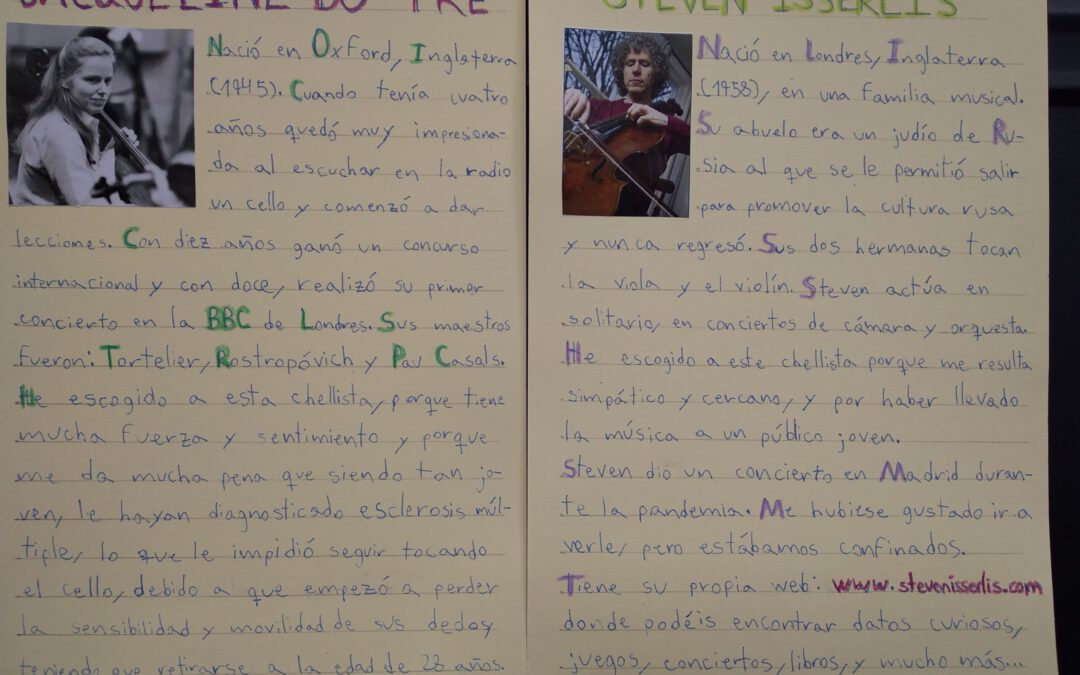 JACQUELINE DU PRE
Nació en Oxford, Inglaterra
(1945). Cuando tenía cuatro
años quedó muy impresiona-
da al escuchar en la radio
un cello y comenzó a dar
lecciones. Con diez años ganó un concurso
internacional y con doce, realizó su primer
concierto en la BBC de Londres. Sus maestros
fueron: Tortelier, Rostropóvich y Pau Casals.
He escogido a esta chellista, porque tiene
mucha fuerza y sentimiento y porque
me da mucha pena que siendo tan jo-
ven, le hayan diagnosticado esclerosis múl-
tiple, lo que le impidió seguir tocando
el cello, debido a que empezó a perder
la sensibilidad y movilidad de sus dedos
teniendo que retirarse a la edad de 28 años.
STEVEN ISSERLIS
Nació en Londres, Inglaterra
(1958), en una familia musical.
Su abuelo era un judío de Ru-
sia al que se le permitió salir
para promover la cultura rusa
y nunca regresó. Sus dos hermanas tocan
la viola y el violín. Steven actúa en
solitario, en conciertos de cámara y orquesta.
He escogido a este chellista porque me resulta
simpático y cercano, y por haber llevado
la música a un público joven.
Steven dio un concierto en Madrid duran-
te la pandemia. Me hubiese gustado ir a
verle, pero estábamos confinados.
Tiene su propia web: www.stevenisserlis.com
donde podéis encontrar datos curiosos,
juegos, conciertos, libros, y mucho más...